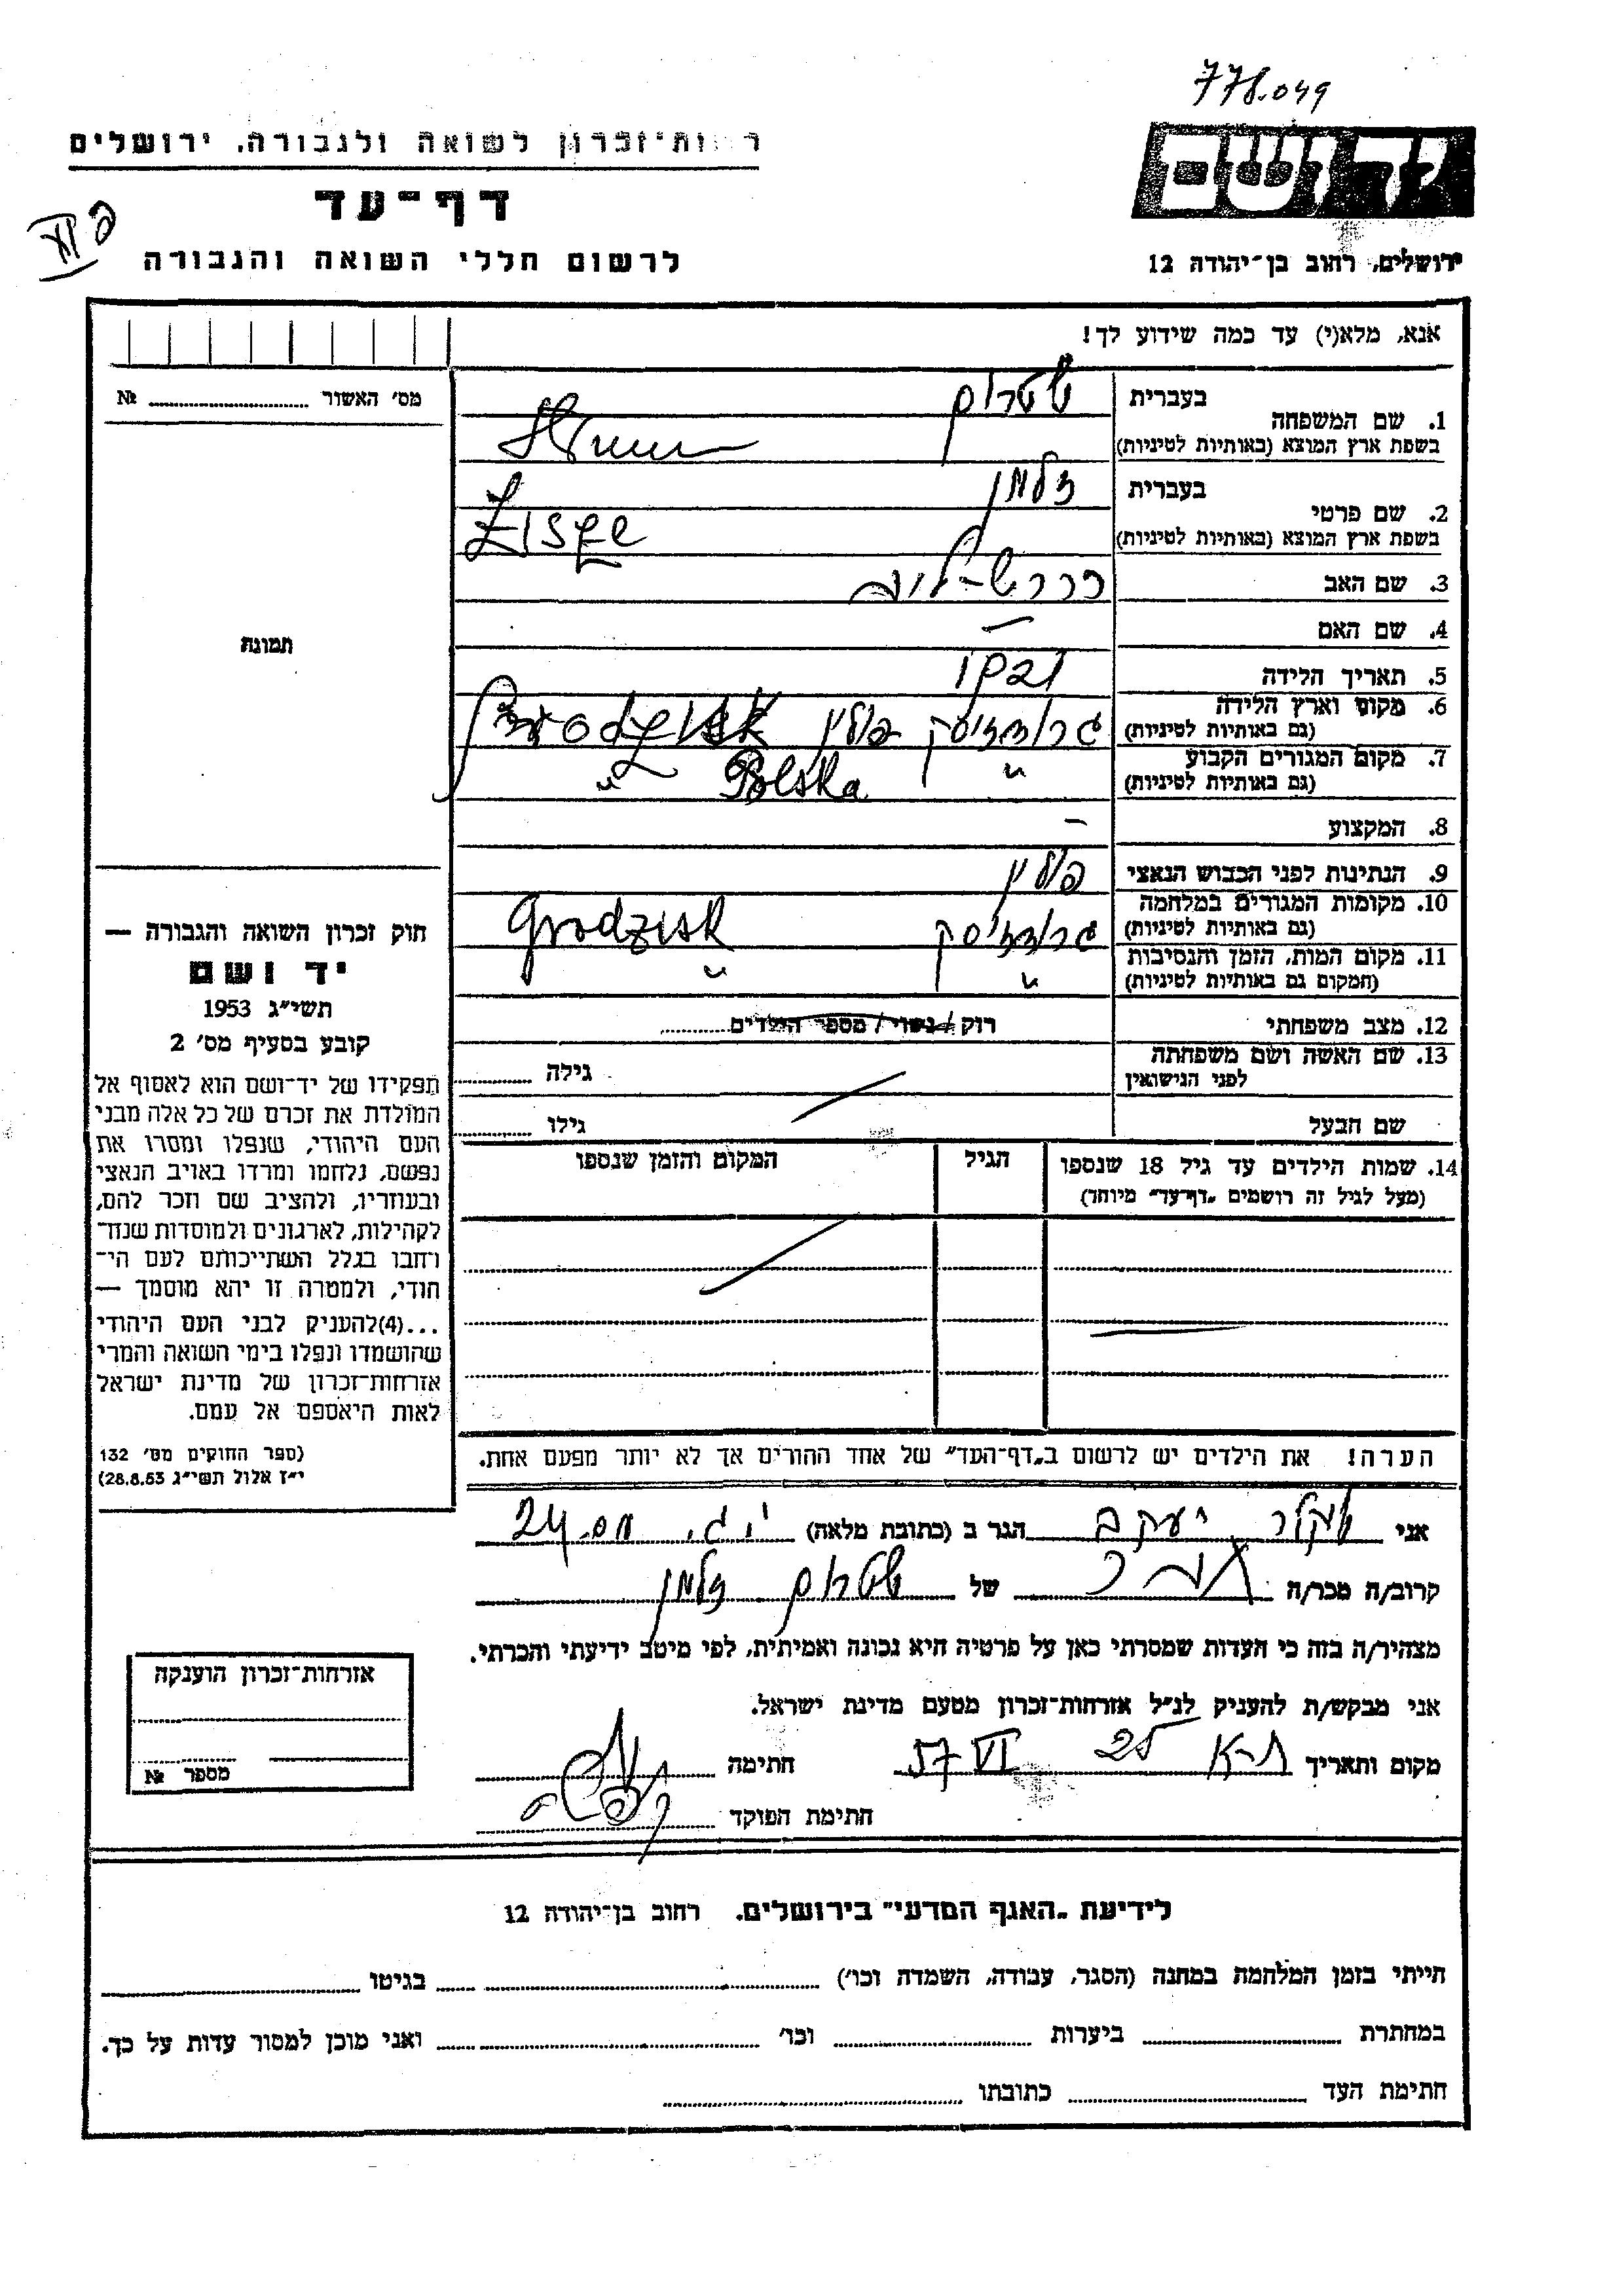 778.049
רשות־זכרון לשואה ולגבורה, ירושלים
יד ושם
דף־עד
לרשום חללי השואה והגבורה
ירושלים, רחוב בן־יהודה 12
אנא, מלא(י) עד כמה שידוע לך!
מס׳ האשור № 
1. שם המשפחה
בעברית שטרום
בשפת ארץ המוצא (באותיות לטיניות)
2. שם פרטי
בעברית זלמן
בשפת ארץ המוצא (באותיות לטיניות)
3. שם האב
4. שם האם —
תמונה
5. תאריך הלידה
6. מקום וארץ הלידה
(גם באותיות לטיניות) גרודזיסק פולין
7. מקום המגורים הקבוע
(גם באותיות לטיניות) " Polska "
8. המקצוע -
9. הנתינות לפני הכבוש הנאצי פולין
10. מקומות המגורים במלחמה
(גם באותיות לטיניות) גרודזיסק Grodzisk
11. מקום המות, הזמן והנסיבות
(המקום גם באותיות לטיניות) " "
12. מצב משפחתי רוק / נשוי / מספר הילדים
13. שם האשה ושם משפחתה
לפני הנישואין גילה
שם הבעל גילו
14. שמות הילדים עד גיל 18 שנספו הגיל המקום והזמן שנספו
(מעל לגיל זה רושמים „דף־עד” מיוחד)
הערה! את הילדים יש לרשום ב„דף־העד” של אחד ההורים אך לא יותר מפעם אחת.
חוק זכרון השואה והגבורה —
יד ושם
תשי״ג 1953
קובע בסעיף מס׳ 2
תפקידו של יד־ושם הוא לאסוף אל
המולדת את זכרם של כל אלה מבני
העם היהודי, שנפלו ומסרו את
נפשם, נלחמו ומרדו באויב הנאצי
ובעוזריו, ולהציב שם וזכר להם,
לקהילות, לארגונים ולמוסדות שנח־
רבו בגלל השתייכותם לעם הי־
הודי, ולמטרה זו יהא מוסמך —
...(4)להעניק לבני העם היהודי
שהושמדו ונפלו בימי השואה והמרי
אזרחות־זכרון של מדינת ישראל
לאות היאספם אל עמם.
(ספר החוקים מס׳ 132
י״ז אלול תשי״ג 28.8.53)
אני יעקב הגר ב (כתובת מלאה) 24
קרוב/ה מכר/ה של שטרום זלמן
מצהיר/ה בזה כי העדות שמסרתי כאן על פרטיה היא נכונה ואמיתית, לפי מיטב ידיעתי והכרתי.
אני מבקש/ת להעניק לנ״ל אזרחות־זכרון מטעם מדינת ישראל.
מקום ותאריך ת-א 25 VI 57 חתימה
חתימת הפוקד
אזרחות־זכרון הוענקה
מספר №
לידיעת „האגף המדעי” בירושלים, רחוב בן־יהודה 12
הייתי בזמן המלחמה במחנה (הסגר, עבודה, השמדה וכו׳) בגיטו
במחתרת ביערות וכו׳ ואני מוכן למסור עדות על כך.
חתימת העד כתובתו